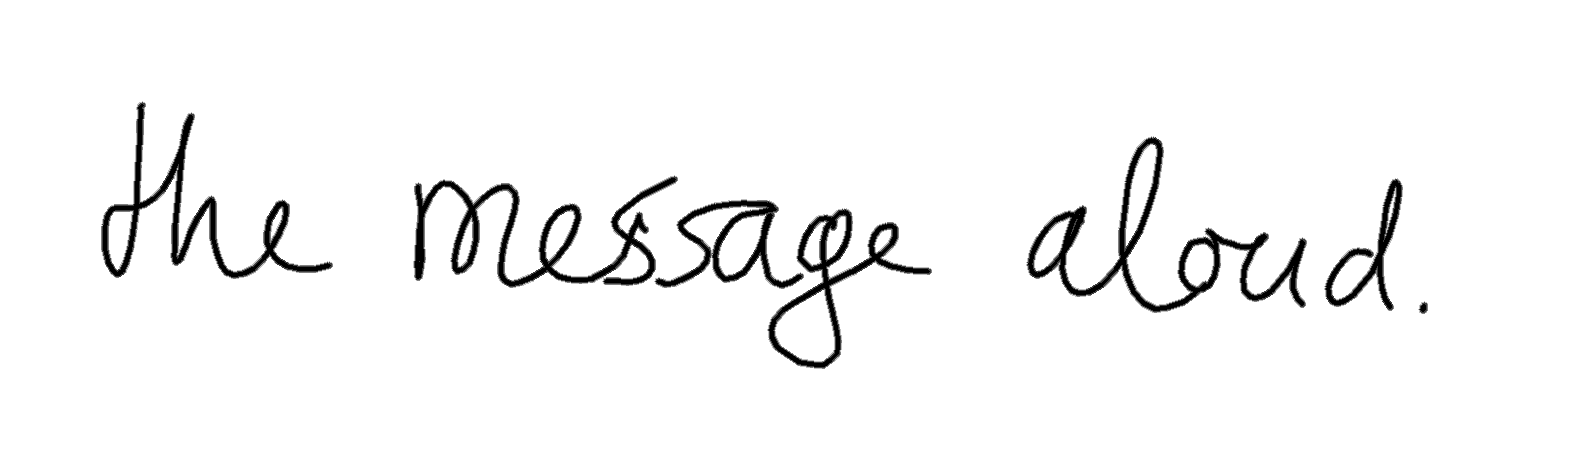 the message aloud.